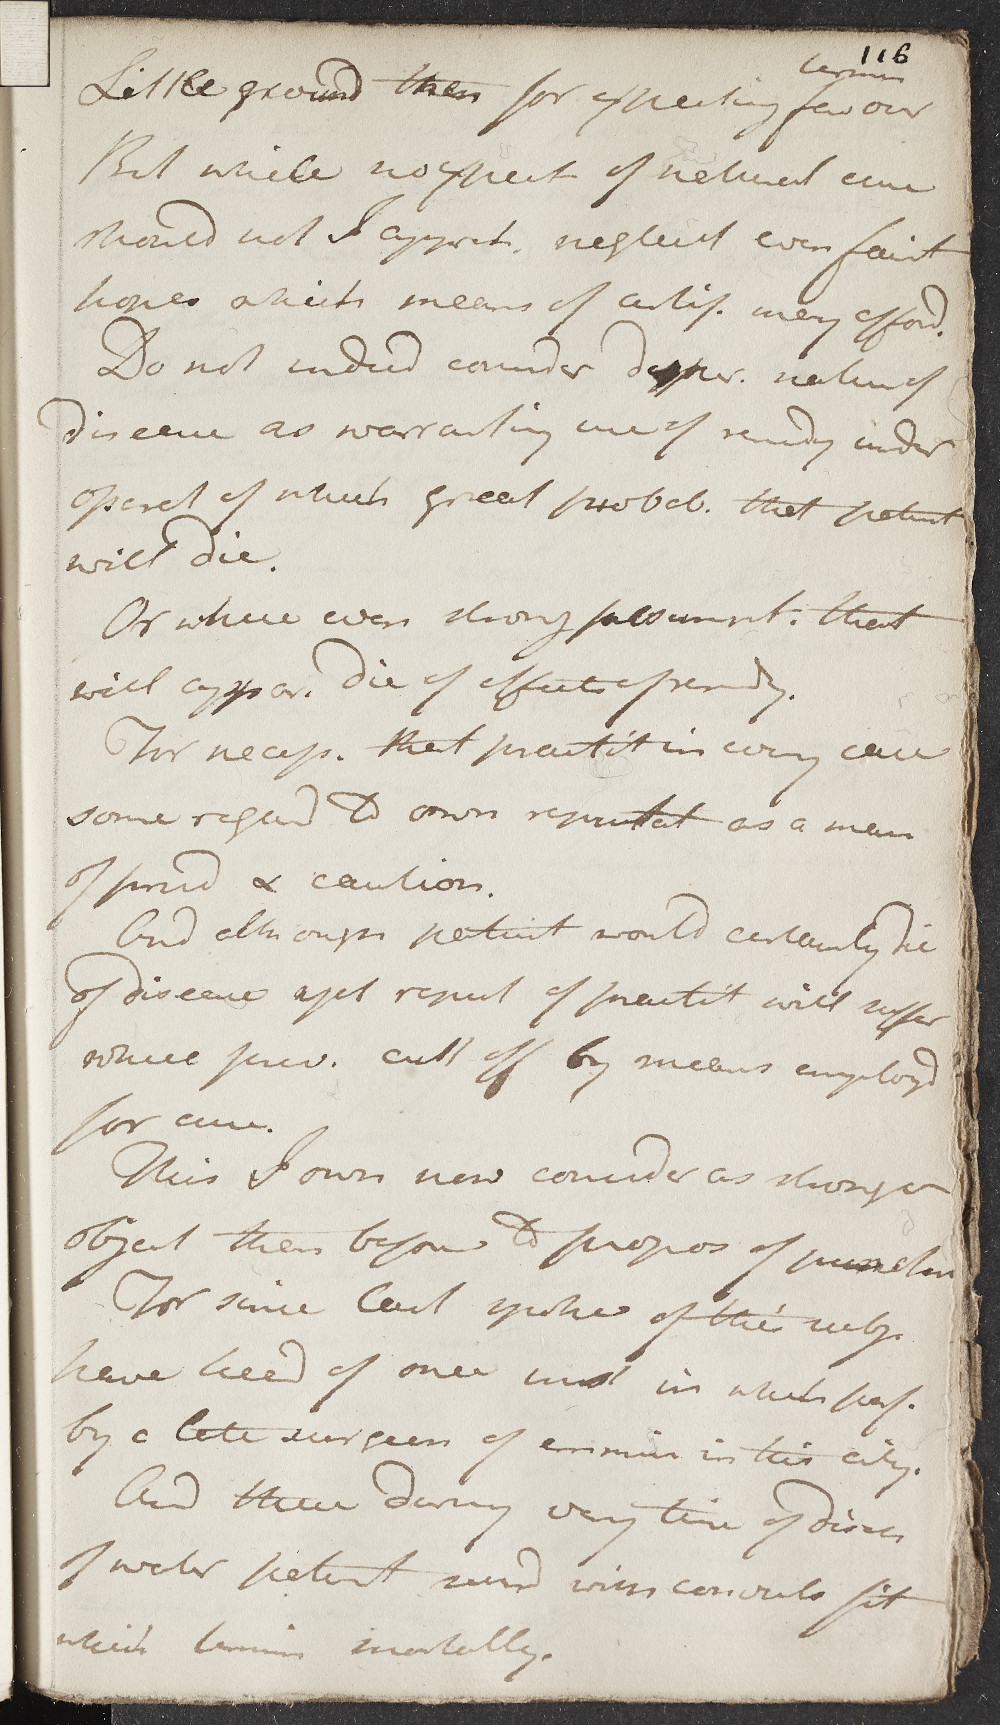 116
termin
Little ground then for expecting favour
But while no expect of natural cure
should not I appreh. neglect even faint
hopes which means of artif. may afford.
Do not indeed consider desper. nature of
disease as warranting use of remedy under
operat of which great probab. that patient
will die.
Or where even strong presumpt. that
will appar. die of effects of remedy.
For necess. that practit in every case
some regard to own reputat as a man
of prud & caution.
And although patient would certainly die
of disease yet reput of practit will suffer
where prev. cutt off by means employd
for cure.
This I own now consider as stronger
object then before to propos of punctur
For since last spoke of this subj.
have heard of one inst in which perf.
by a late surgeon of emmin in this city.
And there during very time of disch
of water patient seized with convuls fit
which termin mortally.